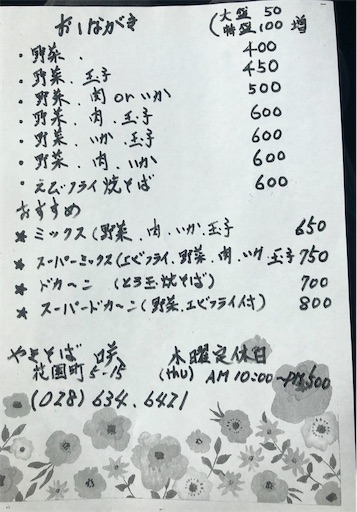 おしながき
(大盛 50
特盛 100 増
・野菜. 400
・野菜. 玉子 450
・野菜. 肉 or いか 500
・野菜. 肉. 玉子 600
・野菜. いか. 玉子 600
・野菜. 肉. いか 600
・えびフライ焼そば 600
おすすめ
★ミックス(野菜. 肉. いか. 玉子 650
★スーパーミックス(エビフライ. 野菜. 肉. いか 玉子 750
★ドカ〜ン (とろ玉焼そば) 700
★スーパードカ〜ン(野菜. エビフライ付) 800
やきそば 咲 木曜定休日
花園町5-15 (thu) AM 10:00〜PM
(028) 634.6421